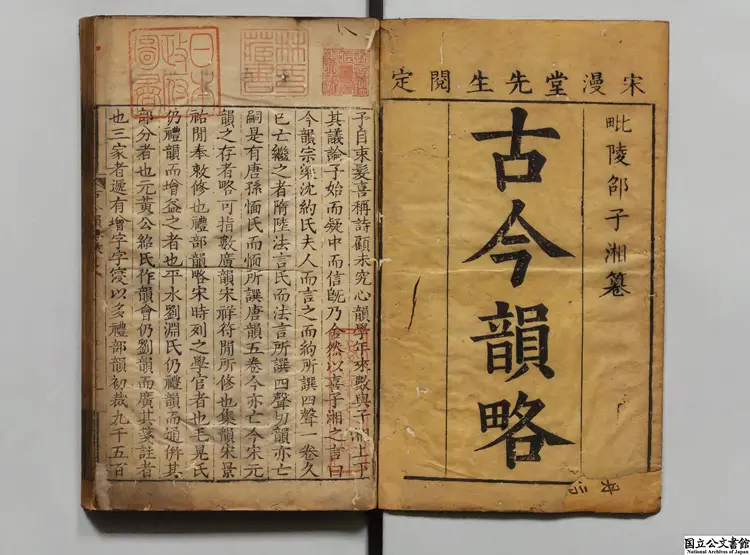 宋漫堂先生閱定
毗陵邵子湘纂
古今韻略
林氏藏書
日本政府圖書
予自束髮喜稱詩顧未究心韻學年來數與子湘上下
其議論予始而疑中而信旣乃舍然以喜子湘之言曰
今韻宗梁沈約氏夫人而言之而約所譔四聲一卷久
已亡繼之者隋陸法言氏而法言所譔四聲切韻亦亡
嗣是有唐孫愐氏而愐所譔唐韻五卷今亦亡今宋元
韻之存者略可指數廣韻宋祥符閒所修也集韻宋景
祐閒奉敕修也禮部韻略宋時列之學官者也毛晃氏
仍禮韻而增益之者也平水劉淵氏仍禮韻而通倂其
部分者也元黃公紹氏作韻會仍劉韻而廣其箋註者
也三家者遞有增字字寖以多禮部韻初裁九千五百
国立公文書館
National Archives of Japan